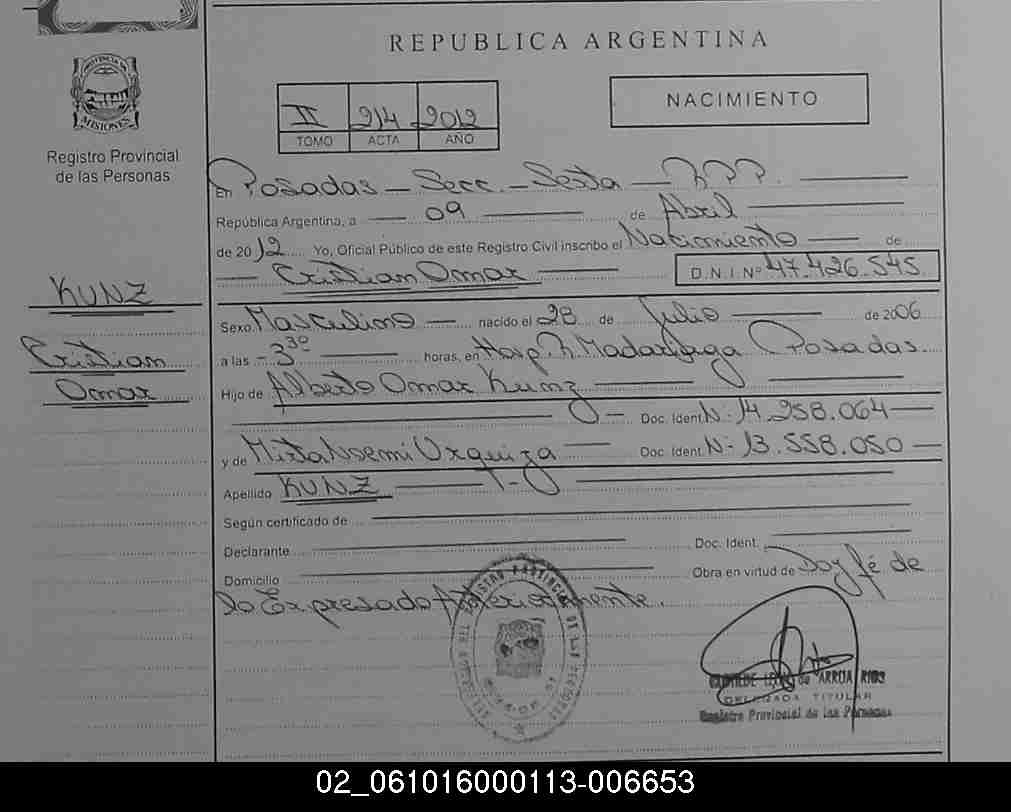 REPUBLICA ARGENTINA
PROVINCIA DE
MISIONES
Registro Provincial
de las Personas
II 214 2012
TOMO ACTA AÑO
NACIMIENTO
En Posadas - Secc. - Sexta
República Argentina, a 09 de Abril
de 2012 Yo, Oficial Público de este Registro Civil inscribo el Nacimiento de
Cristian Omar D.N.I. Nº 47.426.545
KUNZ
Cristian
Omar
Sexo Masculino nacido el 28 de Julio de 2006
a las 3 30 horas, en Hosp. R. Madariaga Posadas.
Hijo de Alberto Omar Kunz
Doc. Ident. N: 14.258.064
y de Mirta Noemi Urquiza Doc. Ident. N: 13.558.050
Apellido KUNZ
Según certificado de
Declarante Doc. Ident.
Domicilio Obra en virtud de Doy fé de
lo Expresado Anteriormente.
REGISTRO PROVINCIAL DE LAS PERSONAS
de ARRUA RIOS
DELEGADA TITULAR
Registro Provincial de las Personas
02_061016000113-006653